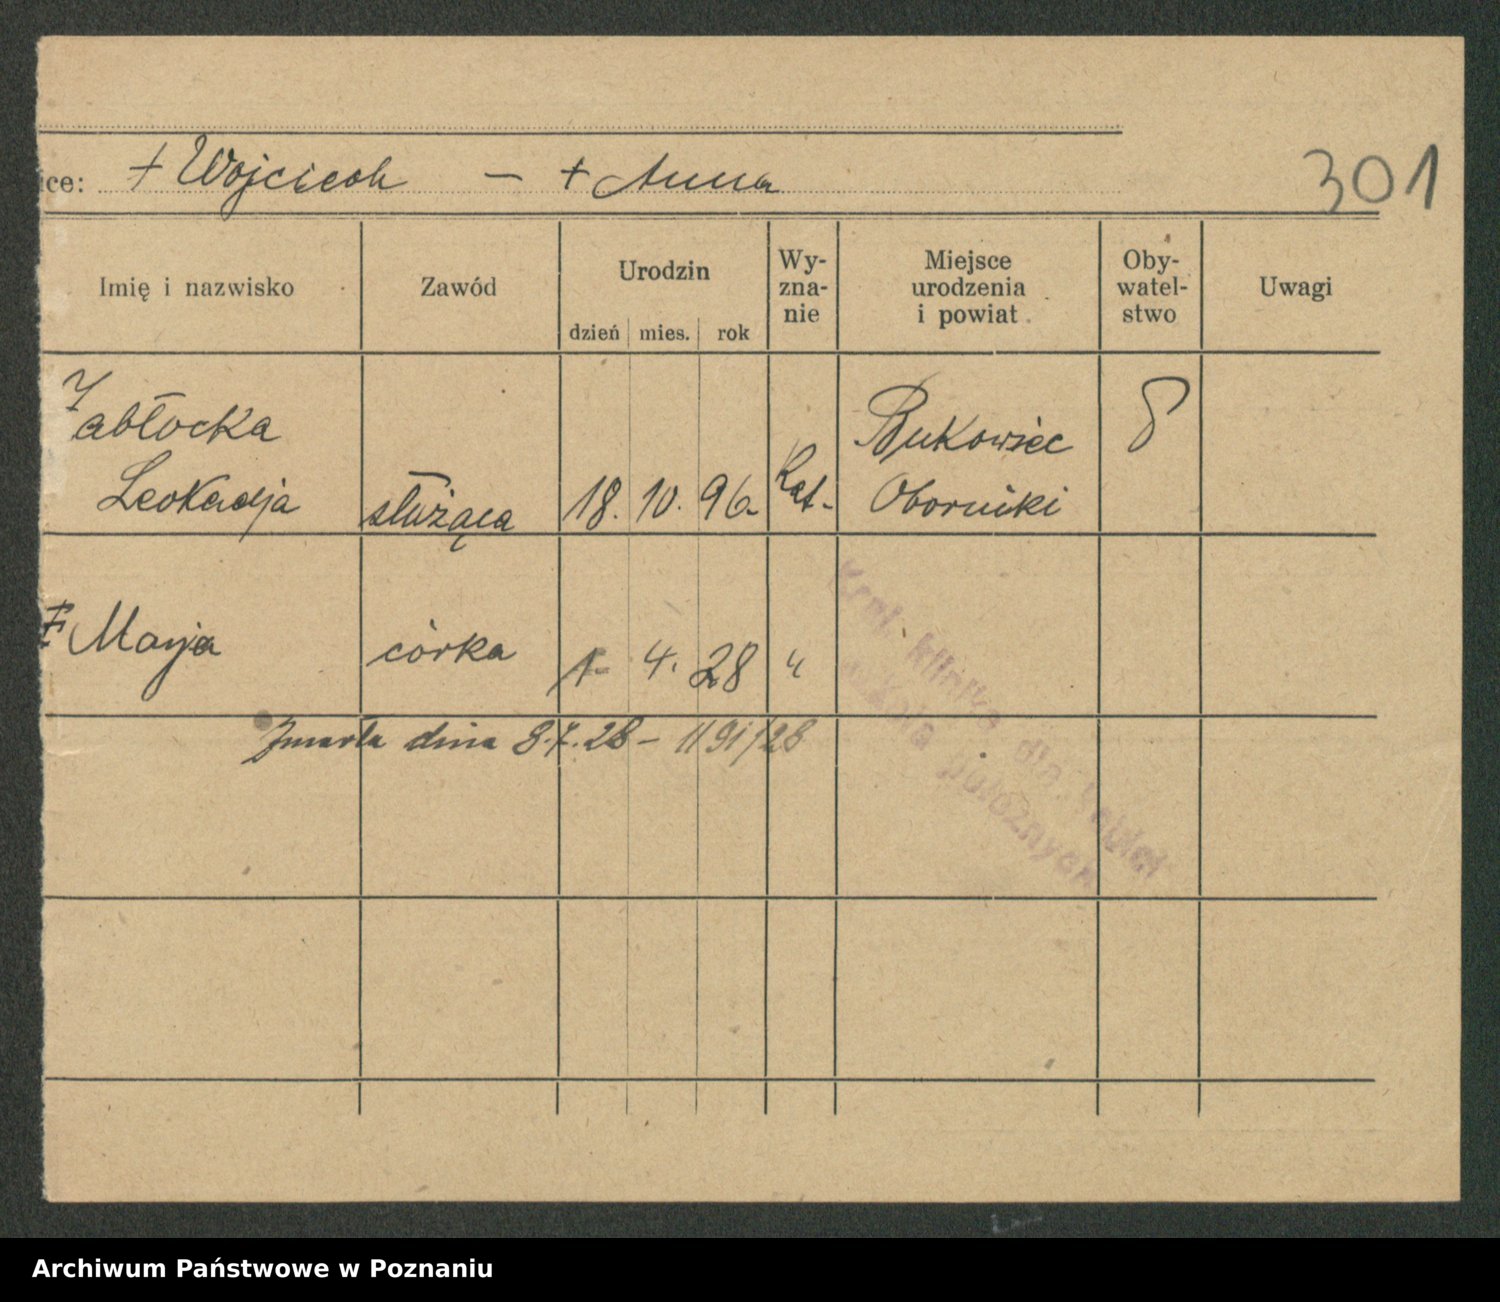 ice: + Wojciech — + Anna
301
Imię i nazwisko
Zawód
Urodzin
dzień mies. rok
Wy-
zna-
nie
Miejsce
urodzenia
i powiat
Oby-
watel-
stwo
Uwagi
Zabłocka
Leokadja służąca 18. 10. 96. Kat. Bukowiec
Oborniki
‡ Marja córka 1- 4. 28 "
Zmarła dnia 8.7.28 – 1191/28
klinika dla kobiet
położnych
Archiwum Państwowe w Poznaniu